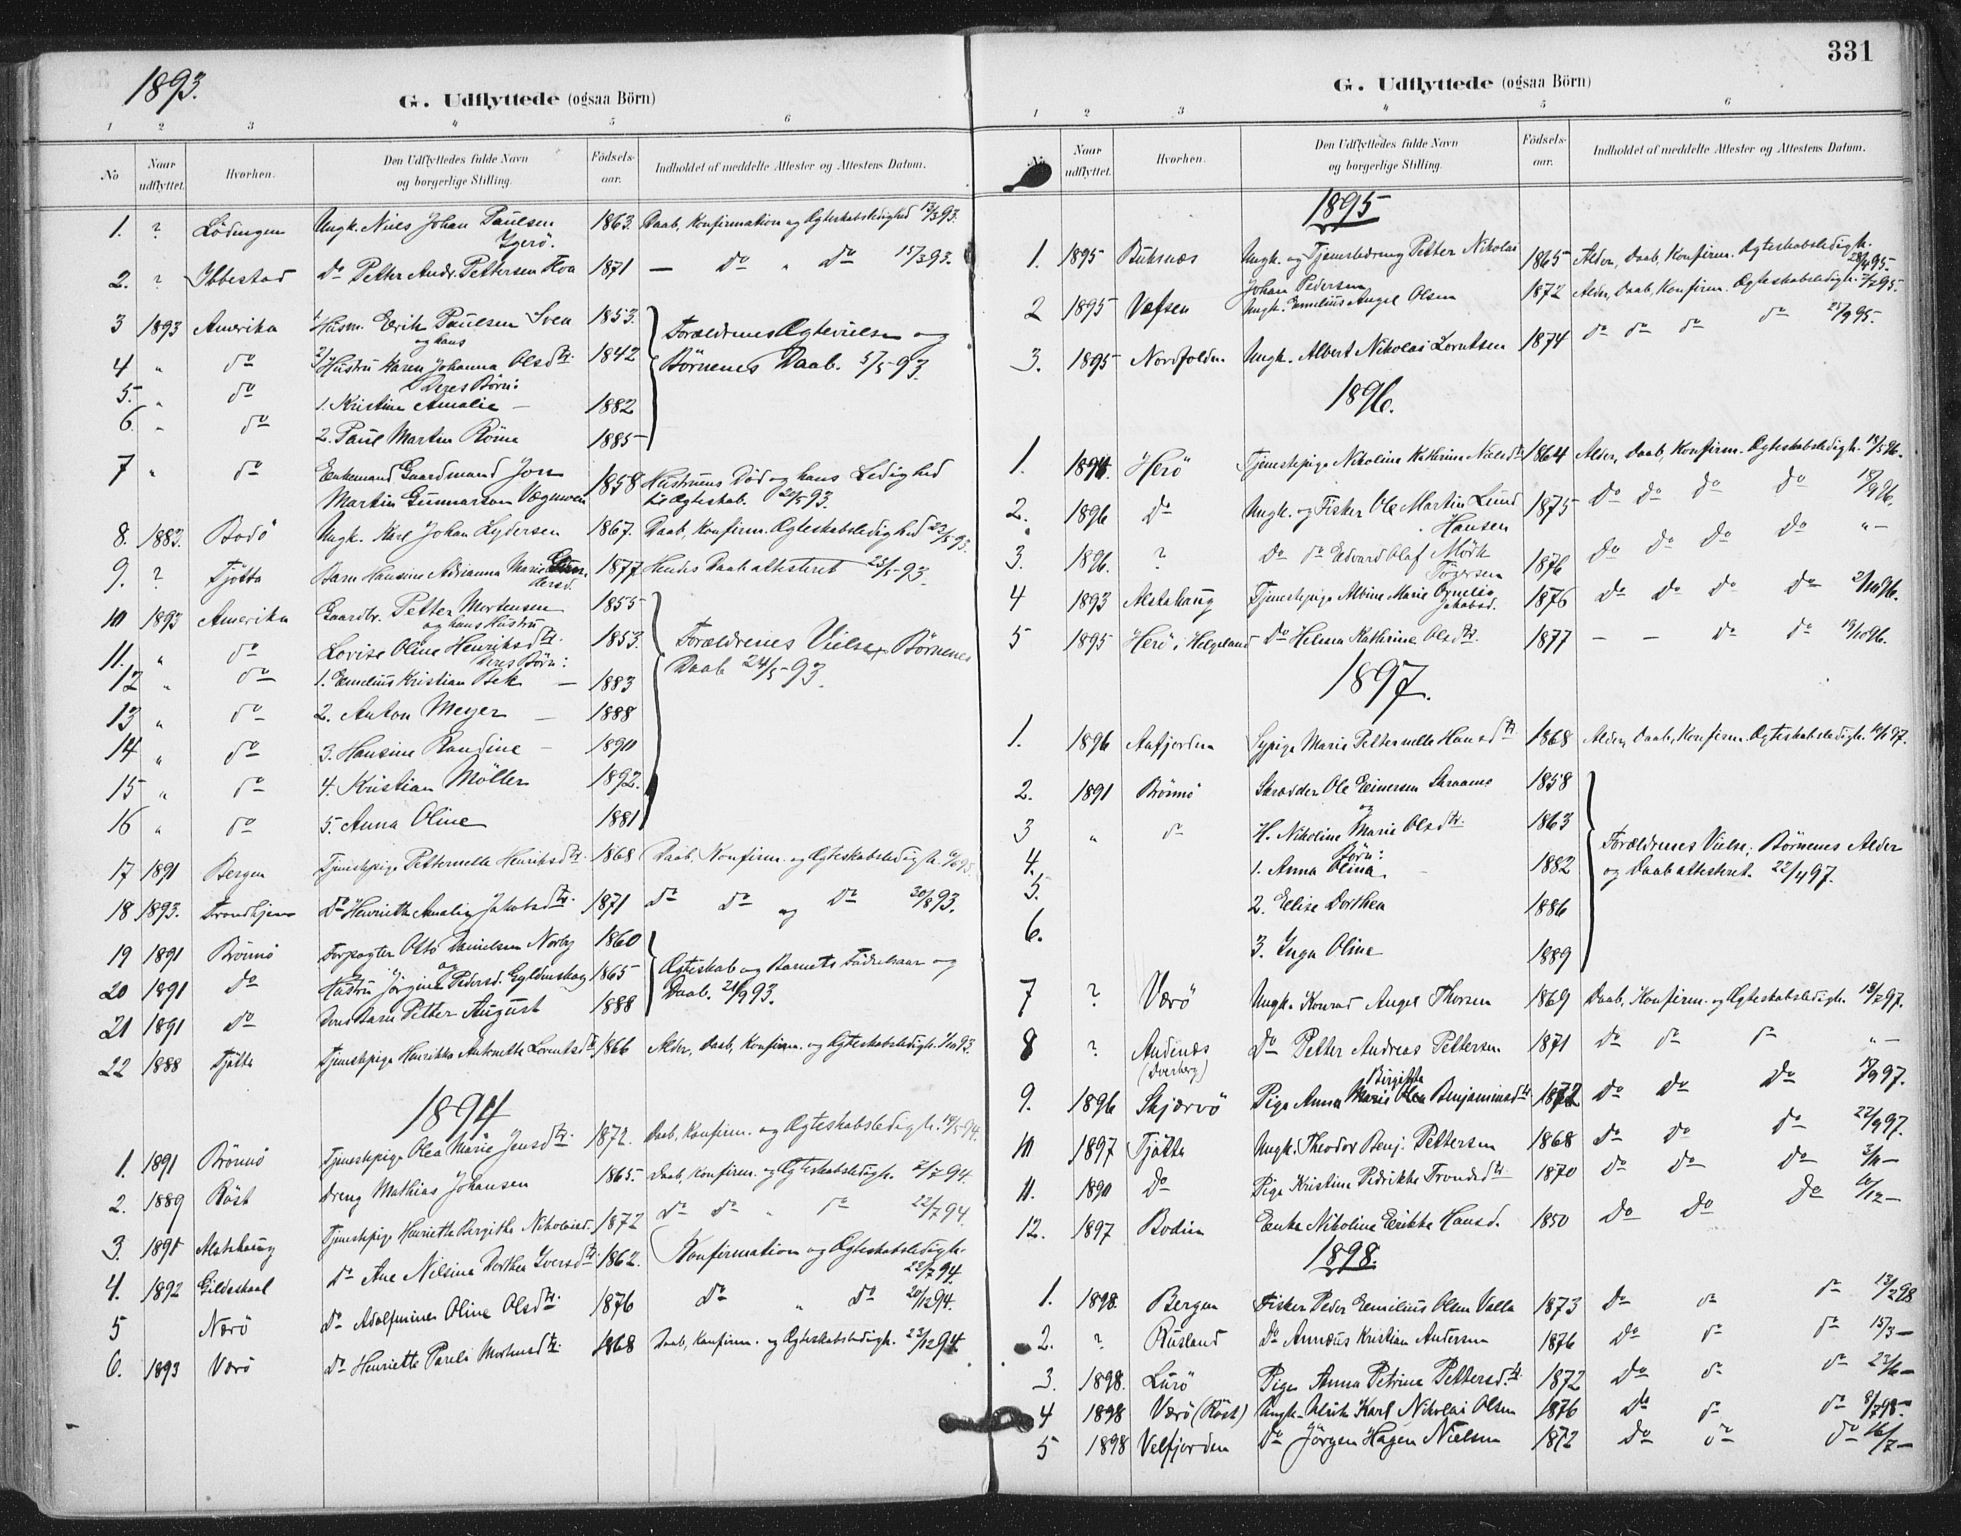 1893.
G. Udflyttede (ogsaa Börn)
1 2 3 4 5 6
No Naar udflyttet. Hvorhen. Den Udflyttedes fulde Navn og borgerlige Stilling. Födsels-aar. Indholdet af meddelte Attester og Attestens Datum.
1. ? Lödingen Ungk. Niels Johan Paulsen 1863. Daab, Konfirmation og Ægteskabsledighed 13/3 93.
2. ? Ibbestad do Petter Andr. Pettersen 1871 — do " do 15/3 93.
3 1893 Amerika 1/ Husm. Erik Paulsen Svea 1853. Forældrenes Ægtevielse og
og hans
4 " do 2/ Hustru Maren Johanna Olsdtr. 1842 Börnenes Daab. 5/5 93.
Deres Börn:
5. " do 1. Kristine Amalie — 1882
6. " do 2. Paul Martin Röine 1885
7 " do Enkemand Gaardmand Jon 1858 Hustruens Död og hans Ledighed
Martin Gunnarson til Ægteskab. 20/5 93.
8. 1883. Bodö Ungk. Karl Johan Lydersen 1867. Daab, Konfirm. Ægteskabsledighed 23/5 93.
9. ? Tjötta Barn Hansine Adrianna Marie 1877 Hendes Daab attesteret 23/5 93.
10 1893 Amerika Gaardbr. Petter Mortensen 1855
og hans Hustru
11. " do Lovise Oline Henriksdtr. 1853. Forældrenes Vielse, Börnenes
Deres Börn:
12 " do 1. Emelius Kristian Bek — 1883 Daab 24/5 93.
13 " do 2. Anton Meyer — 1888
14 " do 3. Hansine Randine — 1890
15 " do 4. Kristian Möller 1892.
16 " do 5. Anna Oline 1881
17 1891 Bergen Tjenestepige Petternelle Henriksdtr. 1868 Daab, Konfirm. og Ægteskabsledigh.
18 1893. Trondhjem do Henriette Amalie Jakobsdtr. 1871 do do og do 30/8 93.
19 1891 Brönnö Forpagter Otto Danielsen Norby 1860
og
20 1891 do Hustru Jörgine Pedersd. Gyldenskog 1865 Ægteskab og Barnets Födselsaar og
21 1891 do Deres Barn Petter August 1888 Daab. 21/9 93.
22 1888 Tjötta Tjenestepige Henrikke Antonette Lorentsdtr 1866 Alder, Daab, Konfirm. og Ægteskabsledigh.
1894
1. 1891 Brönnö Tjenestepige Olea Marie Jensdtr. 1872. Daab, Konfirm. og Ægteskabsledigh. 14/5 94.
2. 1889 Röst Dreng Mathias Johansen 1865. Daab, Konfirm. og Ægteskabsledigh. 2/7 94.
3. 1891 Alstahoug Tjenestepige Henriette Bergithe Nikolaisd. 1872 do do " do 22/7 94.
4. 1892 Gildeskaal do Ane Nilsina Dorthea Iversdtr. 1862. Konfirmation og Ægteskabsledigh.
22/7 94.
5 Nærö do Adolfmine Oline Olsdtr. 1876 do " do 20/12 94.
6. 1893 Værö do Henriette Pauli Mortensdtr. 1868 Daab, Konfirm. og Ægteskabsledigh. 23/12 94.
331
G. Udflyttede (ogsaa Börn)
1 2 3 4 5 6
Naar udflyttet. Hvorhen. Den Udflyttedes fulde Navn og borgerlige Stilling. Födsels-aar. Indholdet af meddelte Attester og Attestens Datum.
1895
1. 1895 Buksnæs Ungk. og Tjenestedreng Petter Nikolai 1865 Alder, Daab, Konfirm. Ægteskabsledigh.
Johan Pedersen 28/4 95.
2 1895 Vefsen Ungk. Emelius Angel Olsen 1872 Alder, Daab, Konfirm. Ægteskabsledigh. 7/7 95.
3. 1895 Nordfolden Ungk. Albert Nikolai Lorntsen 1874 do do do do 25/9 95.
1896.
1. Herö Tjenestepige Nikoline Kathrine Nielsdtr 1864 Alder, Daab, Konfirm. Ægteskabsledigh. 18/5 96.
2. 1896 do Ungk. og Fisker Ole Martin Lund 1875 do do do do 18/9 96.
Hansen
3. 1896. ? do do Edvard Olaf Mörk 1876 do do do do " —
Tögersen
4 1893 Alstahaug Tjenestepige Albine Marie Ornelia 1876 do do do do 2/10 96.
Jakobsd.
5 1895 Herö i Helgeland do Helena Kathrine Olsdtr. 1877 — — do do 19/10 96.
1897.
1. 1896 Aafjorden Sypige Marie Petternelle Hansdtr. 1868 Alder, Daab, Konfirm. Ægteskabsledigh.
2. 1891 Brönnö Skrædder Ole Einersen 1858
og
3 " do H. Nikoline Marie Olsdtr. 1863 Forældrenes Vielse, Börnenes Alder
Börn:
4. 1. Anna Olina 1882 og Daab attesteret. 22/4 97.
5. 2. Elise Dorthea 1886
6. 3. Inga Oline 1889
7 ? Værö Ungk. Konrad Angel Thorsen 1869 Daab, Konfirm. og Ægteskabsledigh. 18/7 97.
8 ? Andenæs do Petter Andreas Pettersen 1871 do do do " —
(Dverberg)
Birgitta
9. 1896 Skjærvö Pige Anna Benjaminsdtr 1872 do do do 17/9 97.
10 1897 Tjötta Ungk. Theodor Benj. Pettersen 1868 do do do 22/9 97.
11. 1890 do Pige Kristine Pedrikke Trondsdtr. 1870 do do do 3/11 —
12. 1897 Bodin Enke Nikoline Erikke Hansd. 1850 do do do 10/12 —
1898.
1. 1898. Bergen Fisker Peder Emilius Olsen Valla 1873 do do do 13/2 98
2. ? Rüsland do Annæus Kristian Andersen 1876 do do do 15/3 —
3. 1898. Lurö Pige Anna Petrine Pettersd.tr. 1872 do do do 23/6 —
4 1898 Værö (Röst) Ungk. Ulrik Karl Nikolai Olsen 1876 do do do
5 1898 Velfjorden do Jörgen Hagen Nielsen 1872 do do do 16/7 —